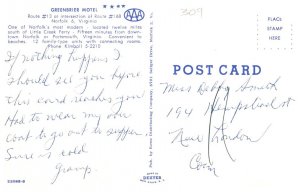 GREENBRIER HOTEL
Route #13 at intersection of Route #168
Norfolk 6, Virginia
One of Norfolk's most modern - located twelve miles
south of Little Creek Ferry - Fifteen minutes from
Norfolk or Portsmouth, Virginia. Convenient to
beaches. 12 family-type units with connecting rooms.
Phone Kimball 5-2210
AAA
309
PLACE
STAMP
HERE
If nothing happens I
should see you before
this card reaches you
Had to wear my own
coat to go out to supper
Sure is cold
Gramp.
POST CARD
Miss Debby Smith
194 Hempstead St
New London
Conn
DEXTER